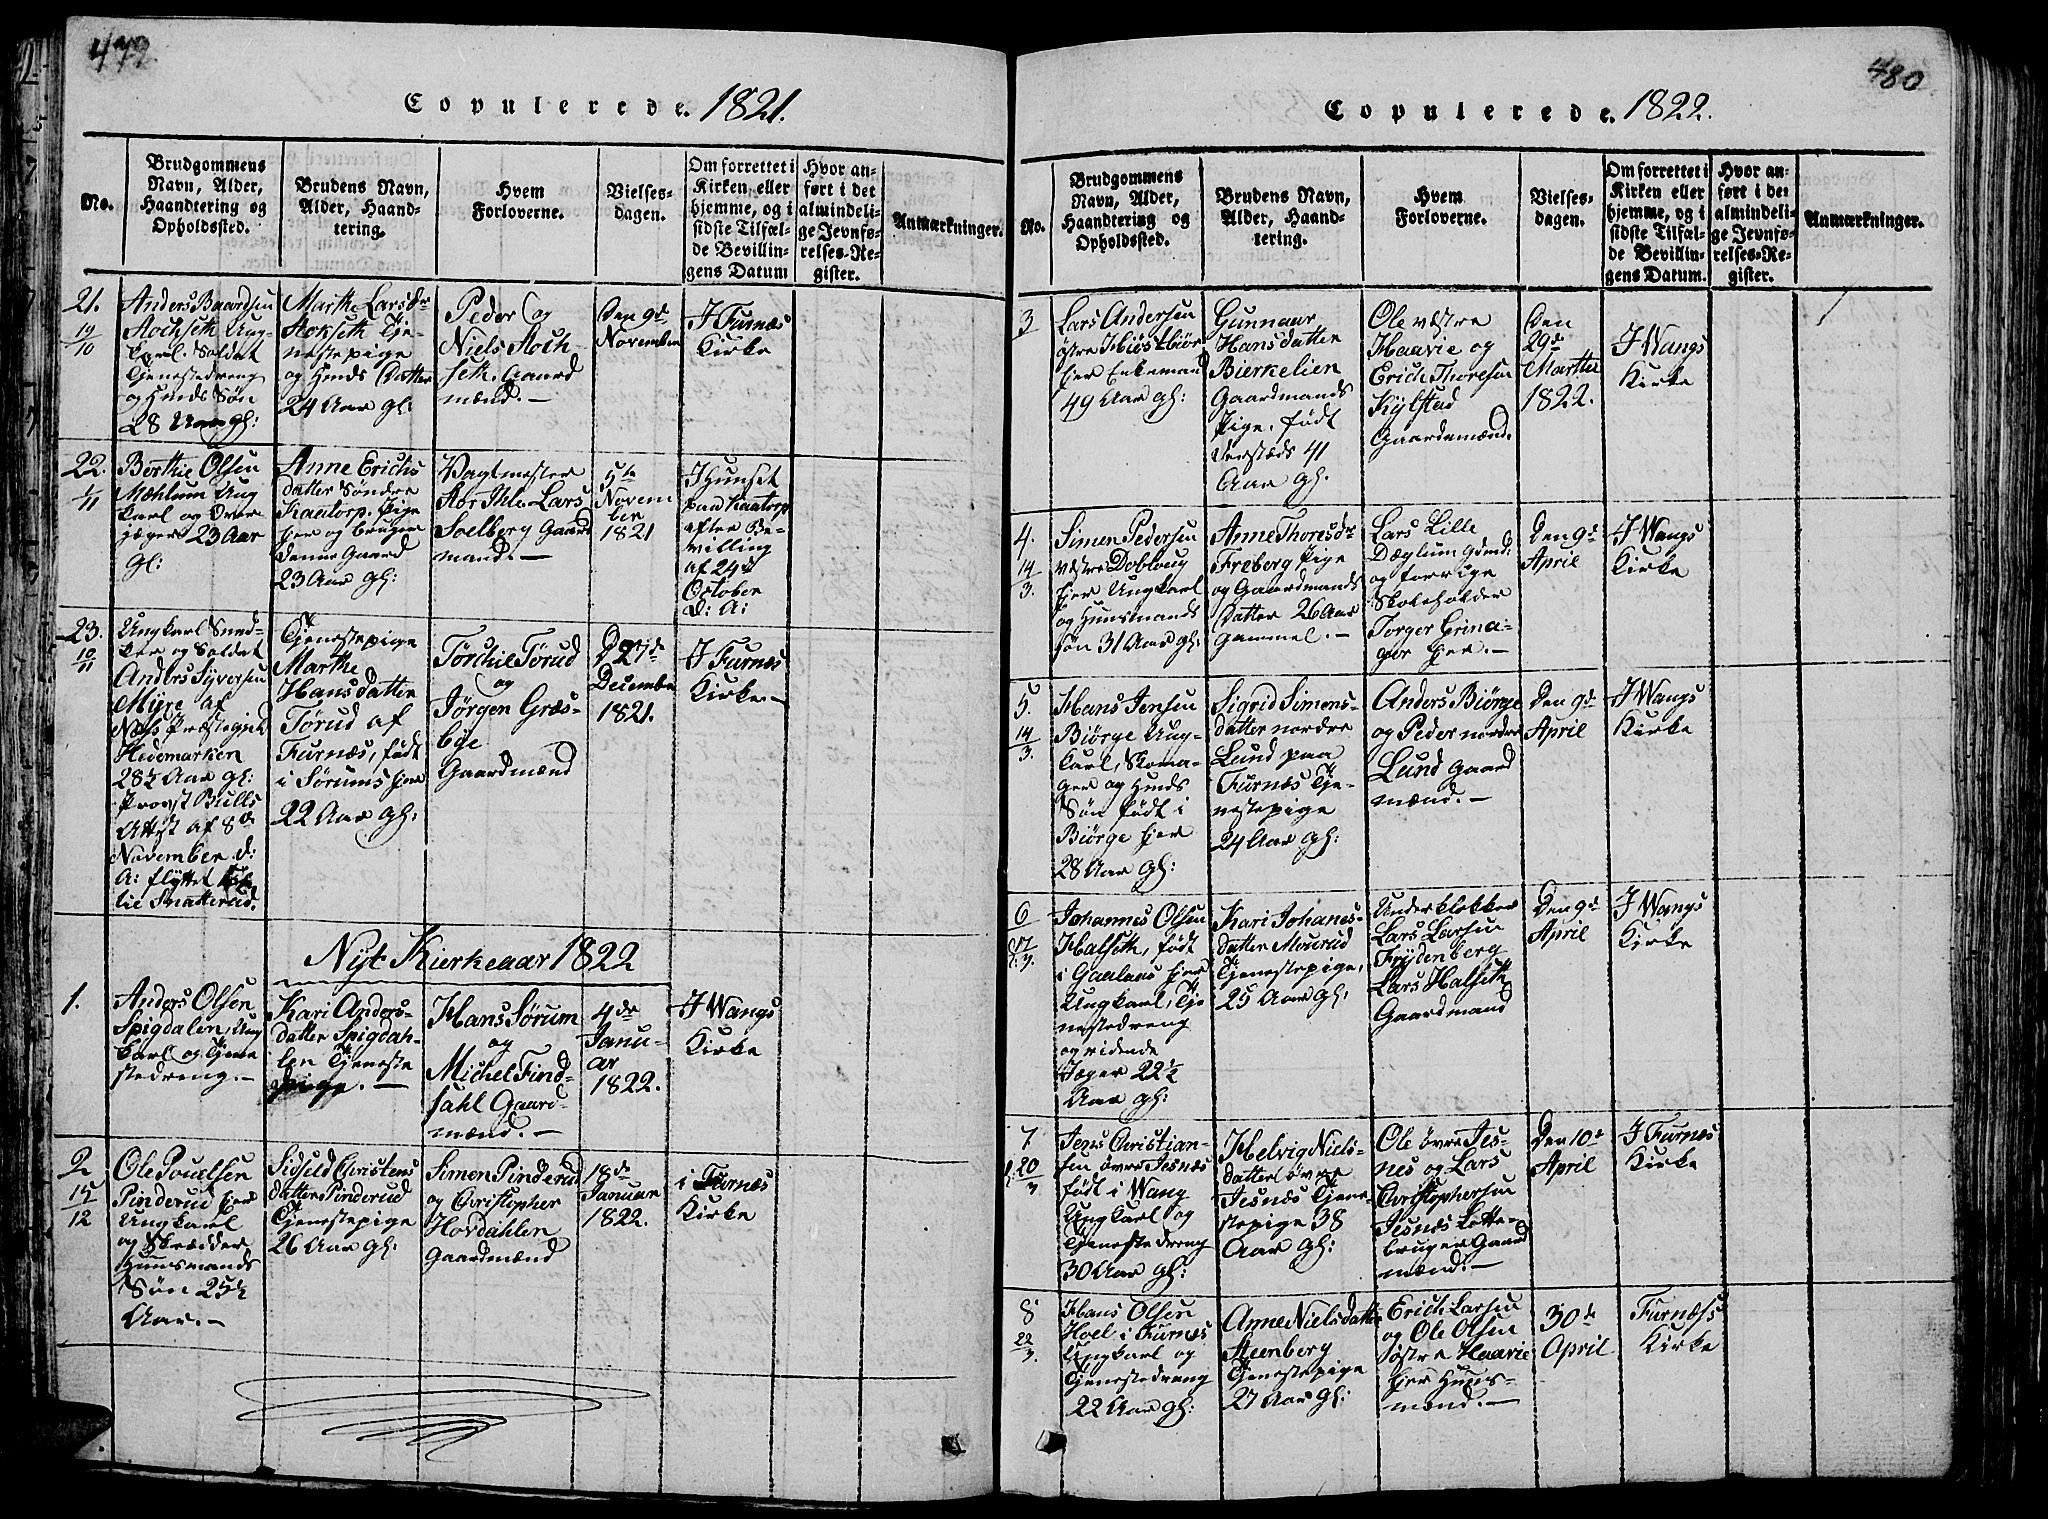 479.
Copulerede. 1821.
No.
Brudgommens
Navn, Alder,
Haandtering og
Opholdssted.
Brudens Navn,
Alder, Haand-
tering.
Hvem
Forloverne.
Vielses-
dagen.
Om forrettet i
Kirken eller
hjemme, og i
sidste Tilfæl-
de Bevillin-
gens Datum
Hvor an-
ført i det
almindeli-
ge Jevnfø-
relses-Re-
gister.
Anmærkninger.
21.
19/10
Anders Baardsen
Stochseth Ung-
karl. Soldat
Tjenestedreng
og Huusds Søn
28 Aar gl:
Marthe Larsdr
Stokseth Tje-
nestepige
og Huusds Datter
24 Aar gl:
Peder og
Niels Stoch-
seth. Gaard
mænd. –
Den 9de
November
I Furnæs
Kirke
22.
1/11
Berthie Olsen
Mæhlum Ung
karl og
jæger 23 Aar
gl:
Anne Erichs
datter Søndre
Kaatorp. Pige
her og bruger
denne Gaard
23 Aar gl:
Vagtmester
Lars
Soelberg Gaard
mænd. –
5te
Novem
ber
1821
I Huuset
paa Kaatorp
efter Be-
villing
af 24de
October
d: A:
23.
10/11
Ungkarl Sned-
ker og Soldat
Anders Syversen
Myre af
Næss Præstegjeld
Hedemarken
28½ Aar gl:
Provst Bulls
Attest af 8de
November d:
A: flyttet
til Snatterud.
Tjenestepige
Marthe
Hansdatter
Törud af
Furnæs, født
i Sørums her
22 Aar gl:
Törchil Törud
og
Jørgen Græs-
bye
Gaardmænd
D 27de
December
1821.
I Furnæs
Kirke. –
Nyt Kierkeaar 1822
1.
Anders Olsen
Spigdalen, Ung
karl og Tjene
stedreng. –
Kari Anders-
datter Spigdah-
len Tjeneste
pige. –
Hans Sørum
og
Michel Find-
sahl Gaard-
mænd. –
4de
Janu-
ar
1822.
I Wangs
Kirke
2
15/12
Ole Pouelsen
Pinderud her
Ungkarl
og Skrædder
Huusmands
Søn 25½
Aar. –
Sidseld Christens
datter Pinderud
Tjenestepige
26 Aar gl:
Simen Pinderud
og Christopher
Hovdahlen
Gaardmænd
18de
Januar
1822.
i Furnæs
Kirke
480
Copulerede. 1822.
No.
Brudgommens
Navn, Alder,
Haandtering og
Opholdssted.
Brudens Navn,
Alder, Haand-
tering.
Hvem
Forloverne.
Vielses-
dagen.
Om forrettet i
Kirken eller
hjemme, og i
sidste Tilfæl-
de Bevillin-
gens Datum.
Hvor an-
ført i det
almindeli-
ge Jevnfø-
relses-Re-
gister.
Anmærkninger.
3
Lars Andersen
østre
her Enkemand
49 Aar gl:
Gunnaar
Hansdatter
Bierkelien
Gaardmands
Pige, født
sersteds 41
Aar gl.
Ole væstre
Haavie og
Erich Thoresen
Kylstad
Gaardmænd.
Den
29de
Martter
1822.
I Wangs
Kirke
4.
14/3.
Simen Pedersen
væstre Dobloug
her Ungkarl
og Huusmands
søn 31 Aar gl:
Anne Thoresdr
Freberg Pige
og Gaardmands
Datter 26 Aar
gammel. –
Lars Lille
Dæglum Gdmd:
og forrige
Skoleholder
Torger Grina-
ger her. –
Den 9de
April
I Wangs
Kirke
5.
14/3.
Hans Jensen
Biørge Ung-
karl, Skoma-
ger og Huusds
Søn født i
Biørge her
28 Aar gl:
Sigrid Simens-
datter nordre
Lund paa
Furnæs Tje-
nestepige
24 Aar gl:
Anders Biørge
og Peder nordre
Lund Gaard
mænd. –
Den 9de
April
I Wangs
Kirke
6
17/3.
Johannes Olsen
Halseth, født
i Gaalaas her
Ungkarl, Tje
nestedreng
og ridende
Jæger 22½
Aar gl:
Kari Johanes-
datter Mourud
Tjenestepige,
25 Aar gl:
Underklokker
Lars Larsen
Frydenberg
Lars Halseth
Gaardmand
Den 9de
April
I Wangs
Kirke
7
20/3
Jens Christian-
sen øvre Jesnæs
født i Wang
Ungkarl og
Tjenestedreng
30 Aar gl:
Helvig Niels-
datter øvre
Jesnæs Tjene-
stepige 38
Aar gl:
Ole øvre Jes-
nes og Lars
Christophersen
Jesnæs
bruger Gaard
mænd. –
Den 10de
April
I Furnæs
Kirke
8
22/3.
Hans Olsen
Hoel i Furnæs
Ungkarl og
Tjenestedreng
22 Aar gl:
Anne Nielsdatter
Steenberg
Tjenestepige
27 Aar gl:
Erich Larsen
og Ole Olsen
østre Haavie
her Huus-
mænd. –
30te
April
Furnæss
Kirke